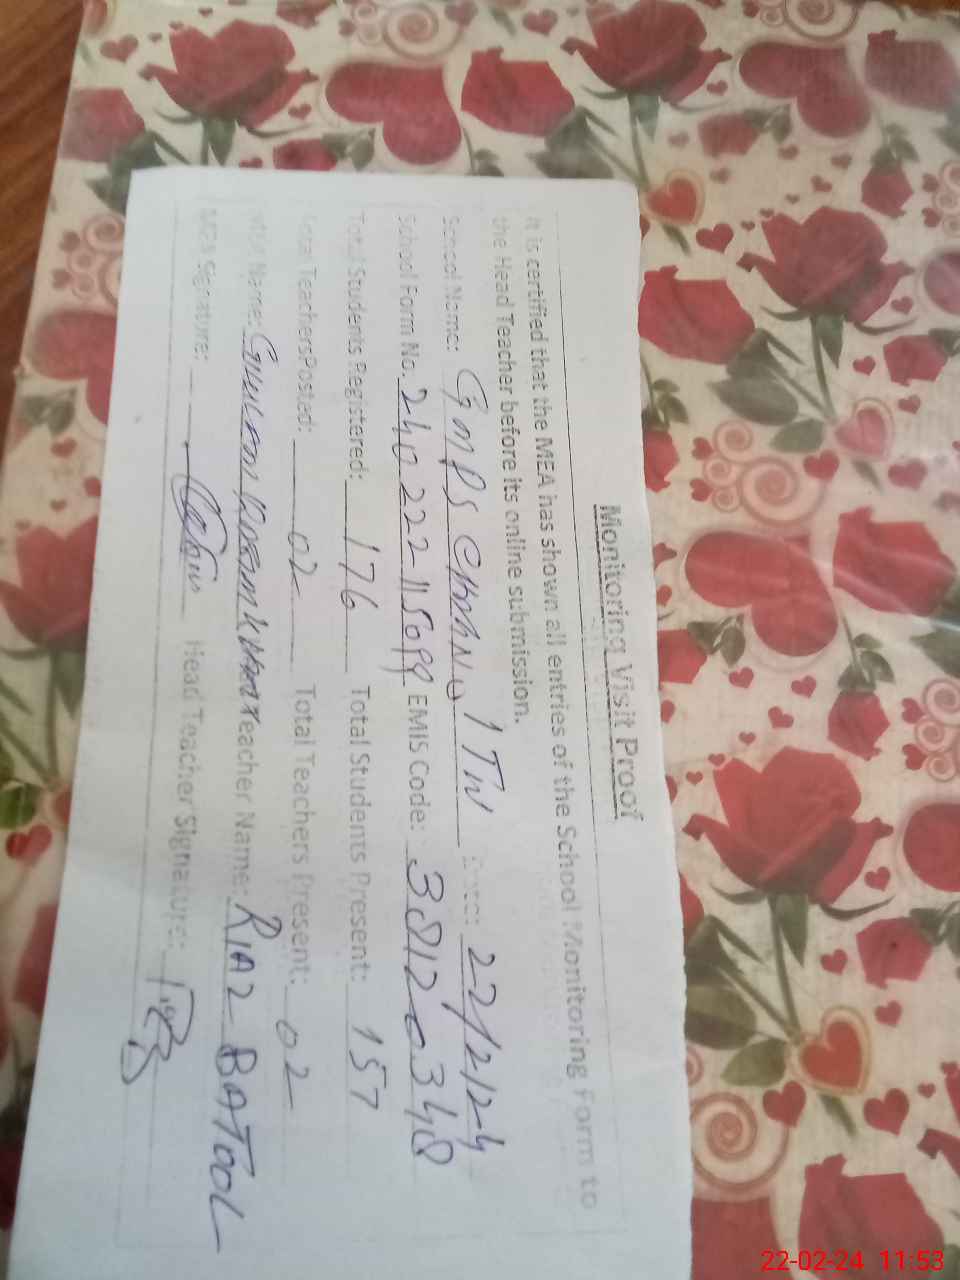 Monitoring Visit Proof
It is certified that the MEA has shown all entries of the School Monitoring Form to
the Head Teacher before its online submission.
School Name: GMPS 1 TW Date: 22/2/24
School Form No. 240222115699 EMIS Code: 38120348
Total Students Registered: 176 Total Students Present: 157
Total Teachers Posted: 02 Total Teachers Present: 02
MEA Name: Teacher Name: RIAZ BATOOL
MEA Signature: Head Teacher Signature:
22-02-24 11:53